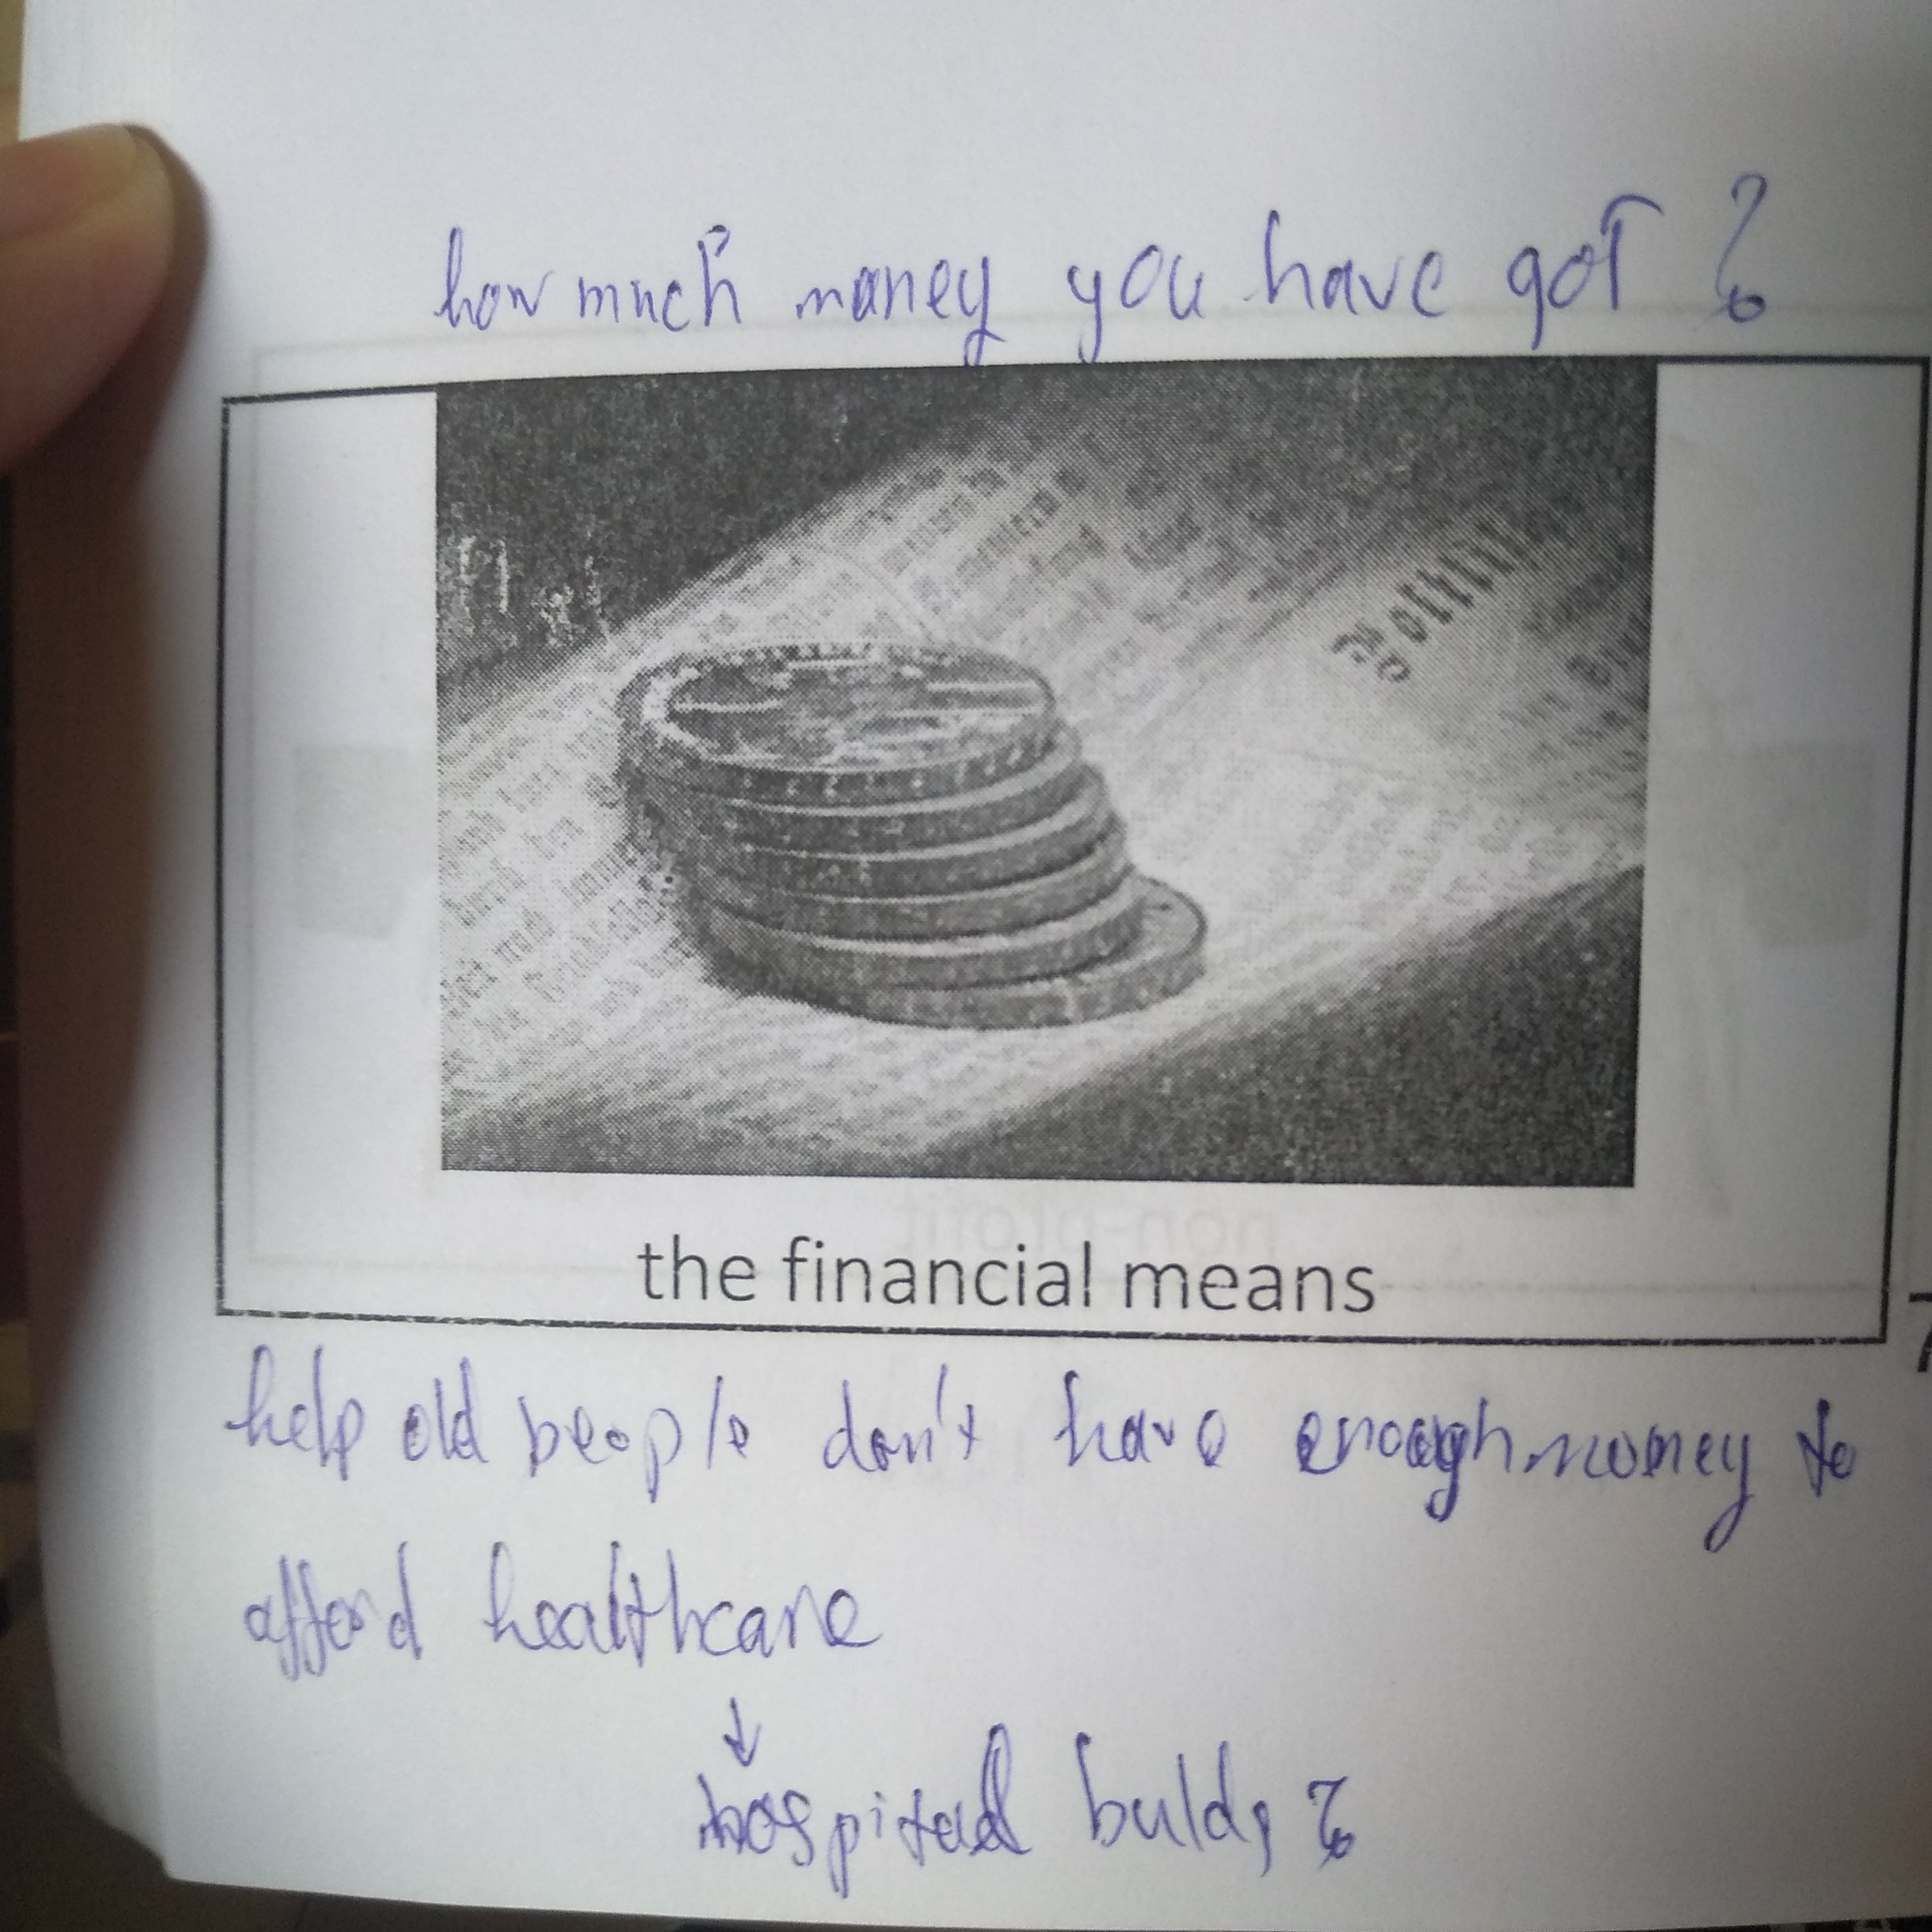 how much money you have got ?
the financial means
help old beople don't have enough money to
afford healthcare
↓
hospital bulds ?